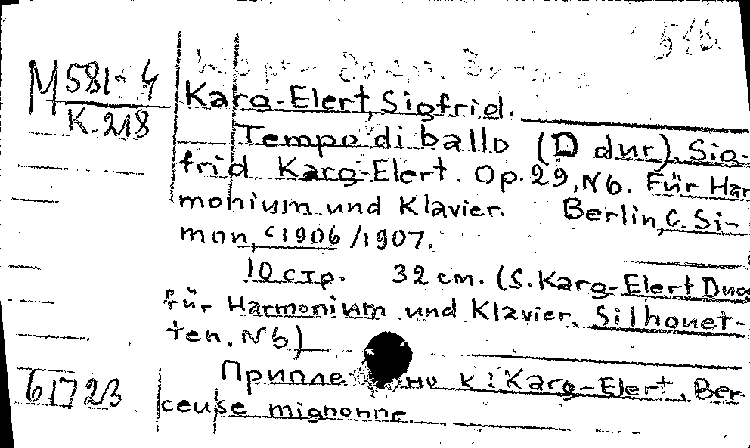 516.
M 581-4
K-218
Karg-Elert, Sigfrid.
Tempo di ballo (D dur). Sig-
frid Karg-Elert. Op. 29, N6. Für Har
monium und Klavier. Berlin, C. Si-
mon, c1906/1907.
10 стр. 32 cm. (S. Karg-Elert Duos
für Harmonium und Klavier. Silhouet-
ten. N6)
к: Karg-Elert. Ber
61723
ceuse mignonne